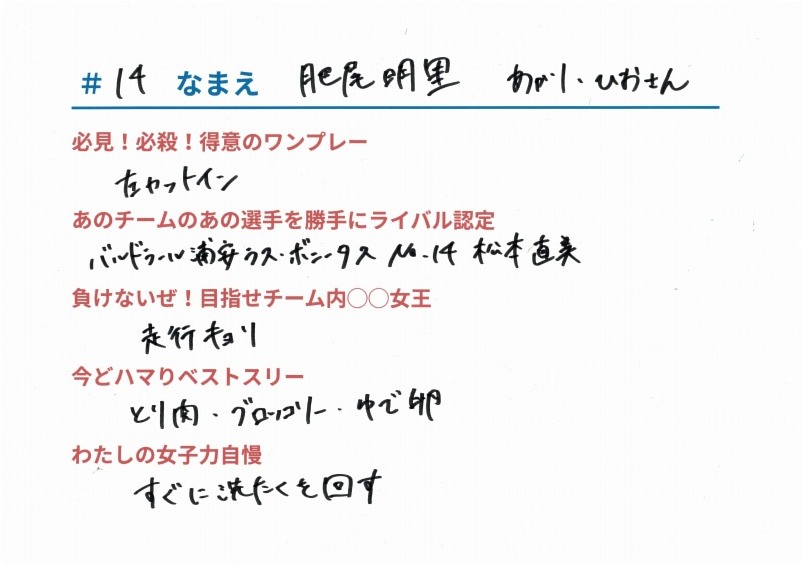 #14 なまえ 肥尾明里 あかり・ひおさん
必見！必殺！得意のワンプレー
左カットイン
あのチームのあの選手を勝手にライバル認定
バルドラール浦安ラス・ボニータス No.14 松本直美
負けないぜ！目指せチーム内◯◯女王
走行キョリ
今どハマりベストスリー
とり肉・ブロッコリー・ゆで卵
わたしの女子力自慢
すぐに洗たくを回す